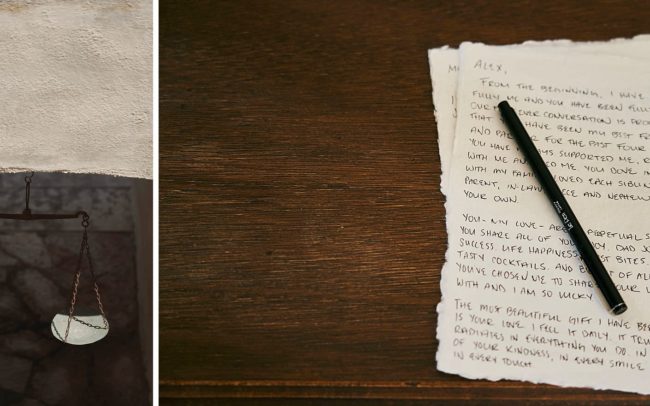 ALEX,
FROM THE BEGINNING, I HAVE
FULLY ME AND YOU HAVE BEEN FULL
OUR EVER CONVERSATION IS PROO
THAT HAVE BEEN MY BEST FR
AND PAR R FOR THE PAST FOUR
YOU HAVE YS SUPPORTED ME,
WITH ME AN ED ME. YOU DOVE IN
WITH MY FAMIL LOVED EACH SIBLIN
PARENT, IN-LAW ECE AND NEPHEW
YOUR OWN.
YOU - MY LOVE - AR PERPETUAL S
YOU SHARE ALL OF YOU JOY. DAD JO
SUCCESS. LIFE HAPPINESS. ST BITES.
TASTY COCKTAILS. AND B T OF AL
YOU'VE CHOSEN ME TO SHAR OUR L
WITH AND I AM SO LUCKY
THE MOST BEAUTIFUL GIFT I HAVE BE
IS YOUR LOVE. I FEEL IT DAILY. IT TRU
RADIATES IN EVERYTHING YOU DO. IN
OF YOUR KINDNESS, IN EVERY SMILE
IN EVERY TOUCH